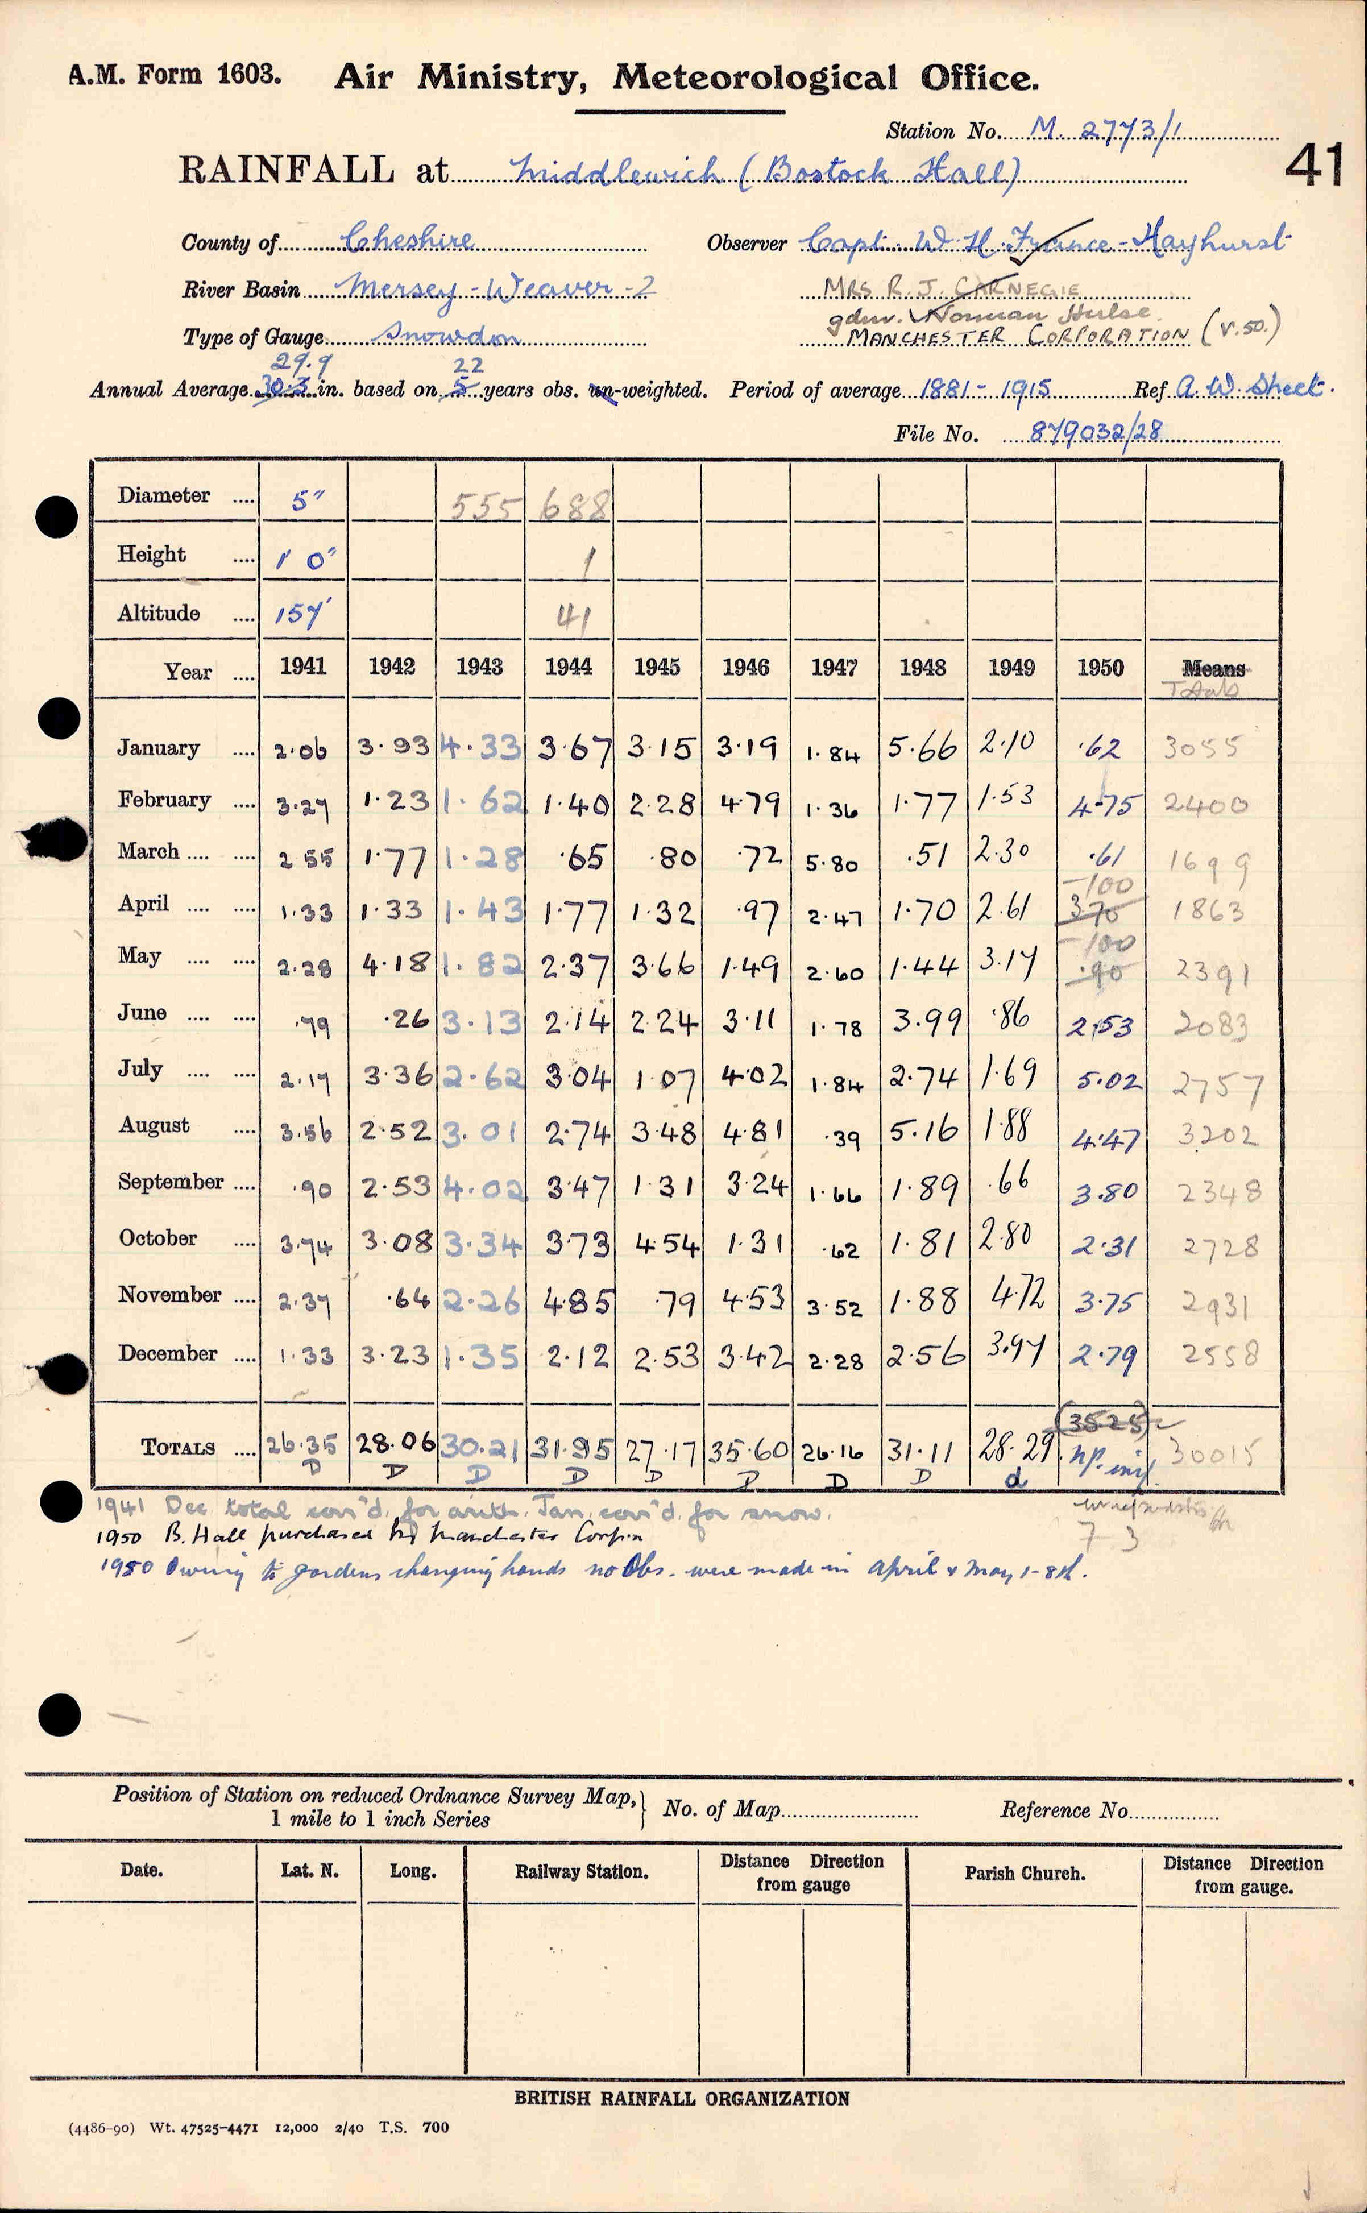 A.M. Form 1603. Air Ministry, Meteorological Office.
Station No. M. 2773/1
41
RAINFALL at Middlewich (Bostock Hall)
County of Cheshire Observer Capt. W. H. France-Hayhurst
River Basin Mersey - Weaver - 2 MRS R. J. CARNEGIE
gdnr. Norman Hulse
Type of Gauge Snowdon MANCHESTER CORPORATION (v.50.)
29.9 22
Annual Average 30.3 in. based on 5 years obs. un-weighted. Period of average 1881 - 1915 Ref A. W. Sheet.
File No. 879032/28
Diameter .... 5" 555 688
Height .... 1' 0" 1
Altitude .... 157' 41
Year .... 1941 1942 1943 1944 1945 1946 1947 1948 1949 1950 Means
Totals
January .... 2.06 3.93 4.33 3.67 3.15 3.19 1.84 5.66 2.10 .62 3055
February .... 3.27 1.23 1.62 1.40 2.28 4.79 1.36 1.77 1.53 4.75 2400
March .... .... 2.55 1.77 1.28 .65 .80 .72 5.80 .51 2.30 .61 1699
-100
April .... .... 1.33 1.33 1.43 1.77 1.32 .97 2.47 1.70 2.61 3.70 1863
-100
May .... .... 2.28 4.18 1.82 2.37 3.66 1.49 2.60 1.44 3.17 .90 2391
June .... .... .79 .26 3.13 2.14 2.24 3.11 1.78 3.99 .86 2.53 2083
July .... .... 2.17 3.36 2.62 3.04 1.07 4.02 1.84 2.74 1.69 5.02 2757
August .... 3.56 2.52 3.01 2.74 3.48 4.81 .39 5.16 1.88 4.47 3202
September .... .90 2.53 4.02 3.47 1.31 3.24 1.66 1.89 .66 3.80 2348
October .... 3.74 3.08 3.34 3.73 4.54 1.31 .62 1.81 2.80 2.31 2728
November .... 2.37 .64 2.26 4.85 .79 4.53 3.52 1.88 4.72 3.75 2931
December .... 1.33 3.23 1.35 2.12 2.53 3.42 2.28 2.56 3.97 2.79 2558
(35.25)
TOTALS .... 26.35 28.06 30.21 31.95 27.17 35.60 26.16 31.11 28.29 np. 30015
D D D D D D D D d
1941 Dec total corr'd. for arith. Jan. corr'd. for snow.
1950 B. Hall purchased by Manchester Corp'n
7 3
1950 Owing to gardens changing hands no Obs. were made in April & May 1-8th.
Position of Station on reduced Ordnance Survey Map, } No. of Map Reference No
1 mile to 1 inch Series
Date. Lat. N. Long. Railway Station. Distance Direction from gauge Parish Church. Distance Direction from gauge.
BRITISH RAINFALL ORGANIZATION
(4486-90) Wt. 47525-4471 12,000 2/40 T.S. 700